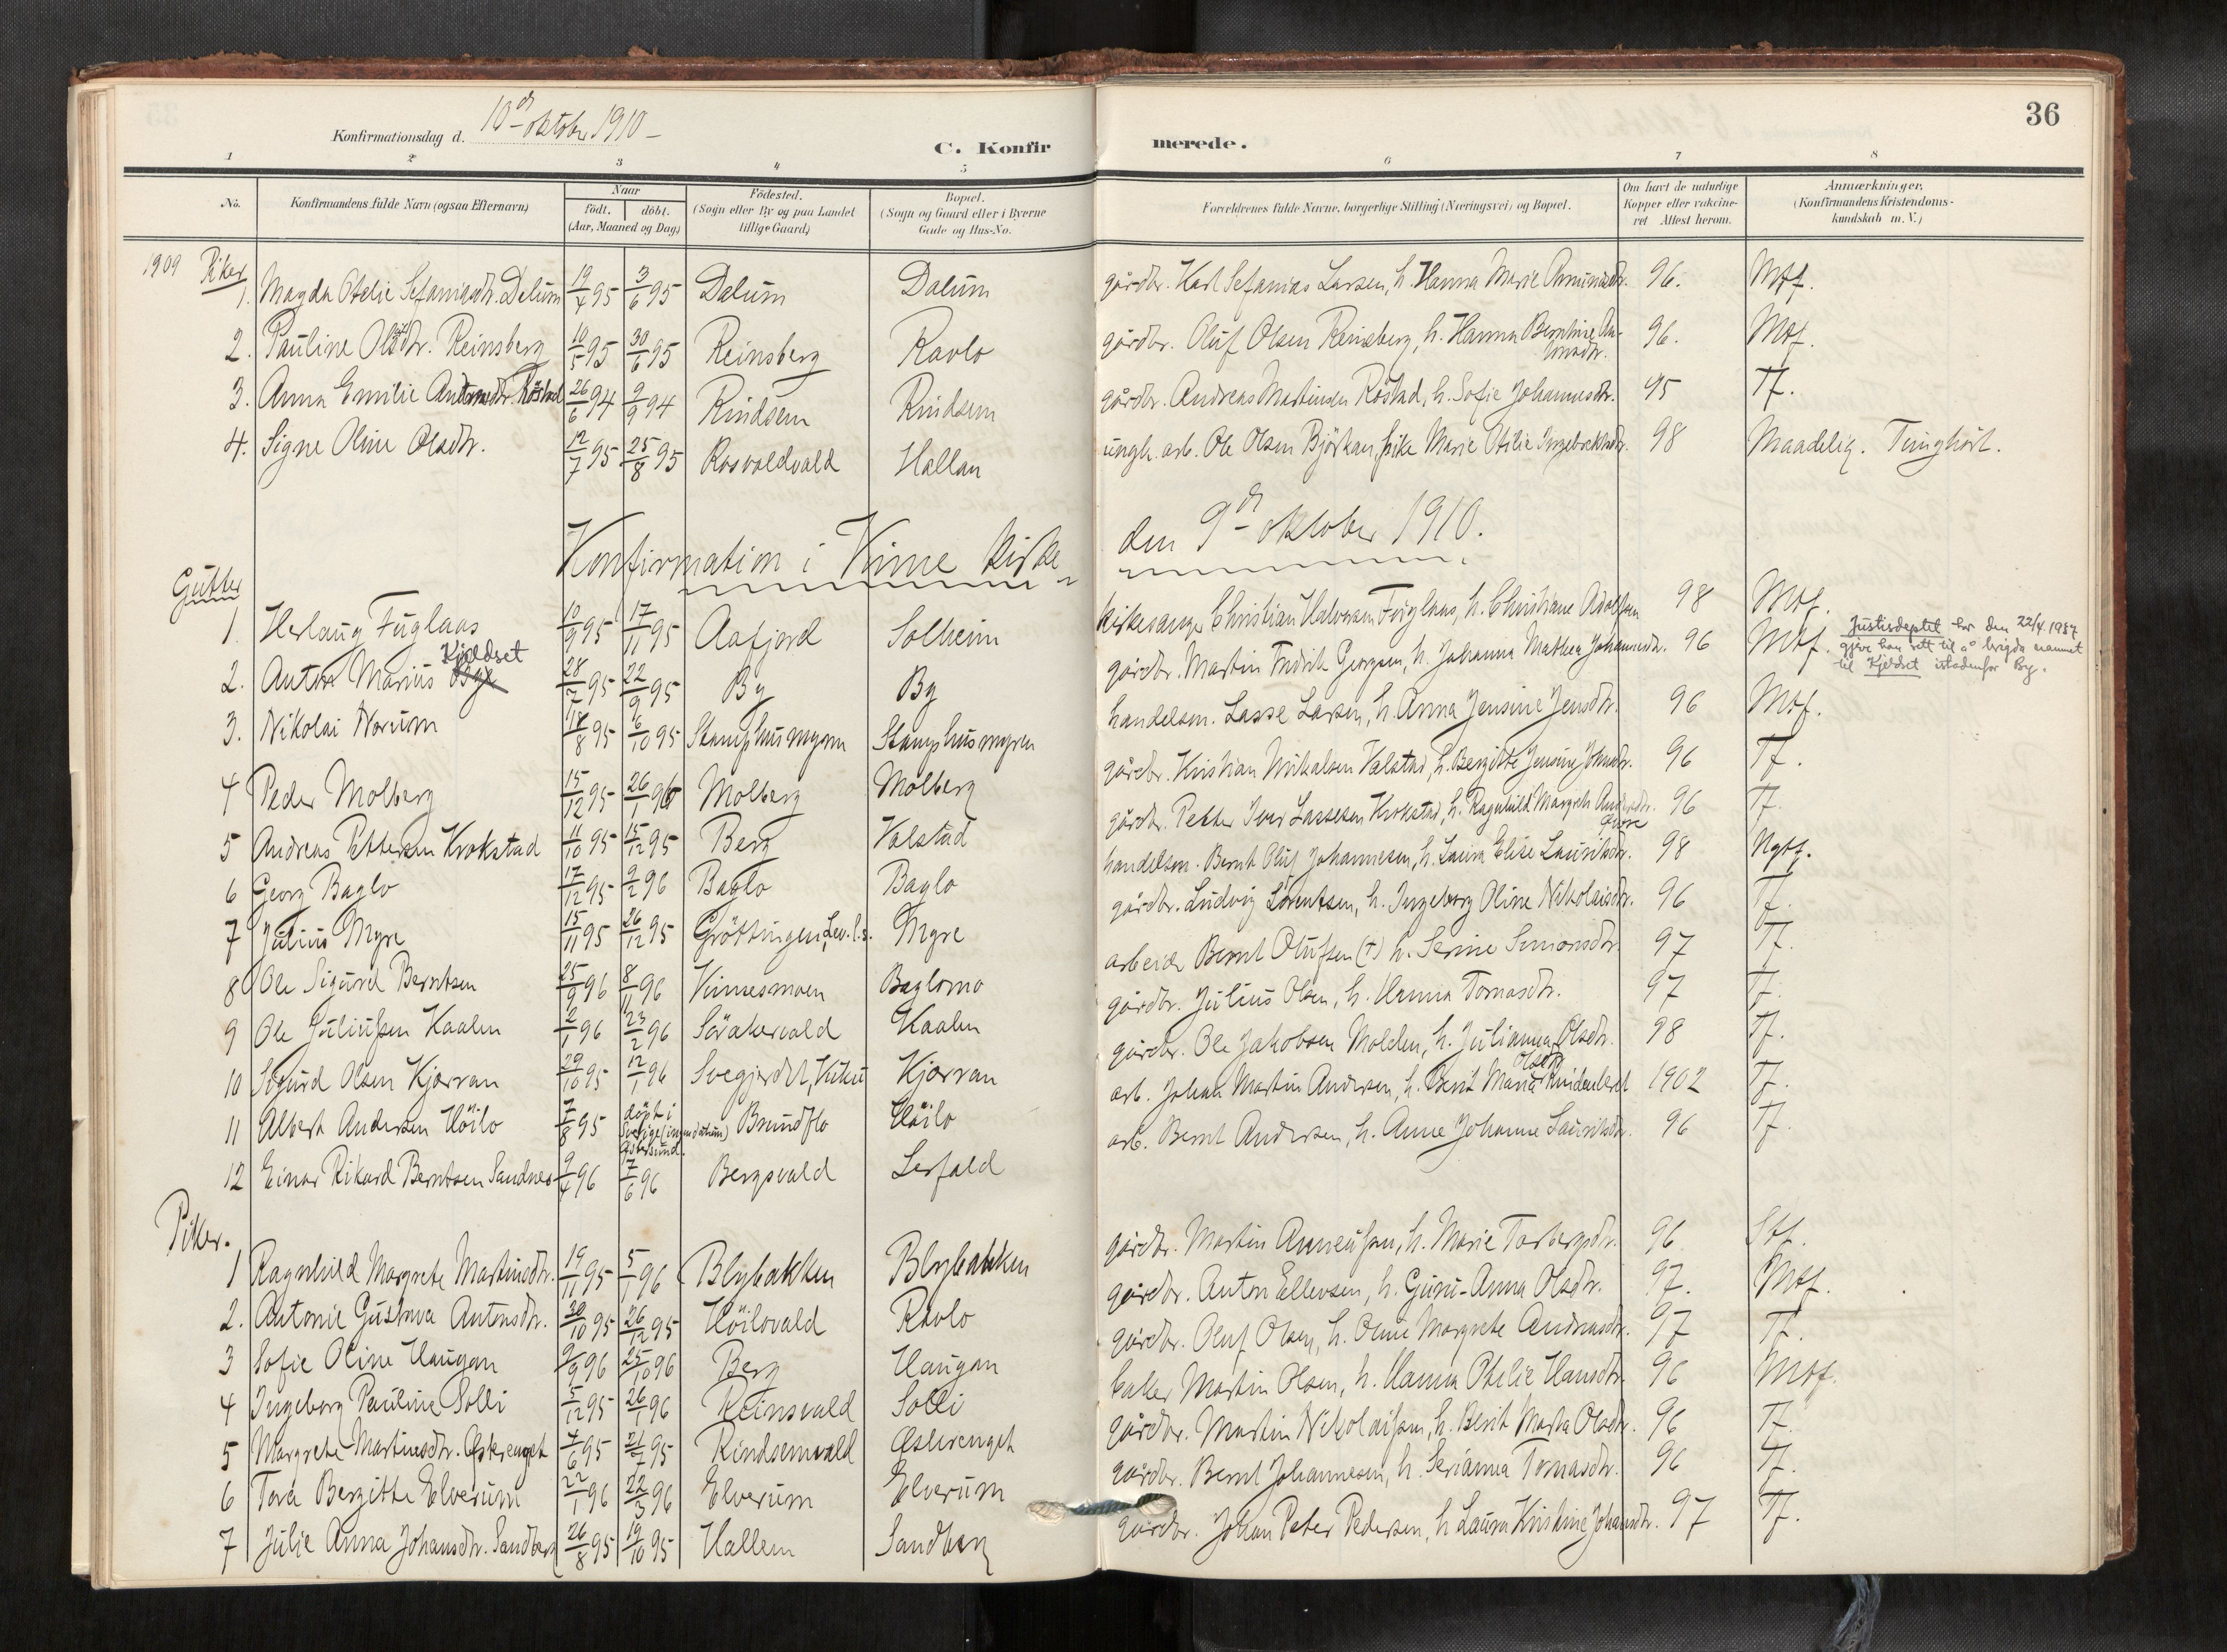 36
Konfirmationsdag d. 10de oktober 1910 -
C. Konfirmerede.
1 2 3 4 5 6 7 8
No. Konfirmandens fulde Navn (ogsaa Efternavn) Naar født. døbt. (Aar, Maaned og Dag) Fødested. (Sogn eller By og paa Landet tillige Gaard) Bopæl. (Sogn og Gaard eller i Byerne Gade og Hus-No. Forældrenes fulde Navne, borgerlige Stilling (Næringsvei) og Bopæl. Om havt de naturlige Kopper eller vaccineret Attest herom. Anmærkninger. (Konfirmandens Kristendomskundskab m. V.)
1909 Piker
1. Magda Otelie Sefaniasdtr. Dalum 19/4 95 3/6 95 Dalum Dalum gårdbr. Karl Sefanias Larsen, h. Hanna Marie Amundsdtr. 96. Mtf.
2. Pauline Olsdtr. Reinsberg 10/5 95 30/6 95 Reinsberg Ravlo gårdbr. Oluf Olsen Reinsberg, h. Hanna Berntine 96. Mtf.
3. Anna Emilie Röstad 26/6 94 9/9 94 Rindsem Rindsem gårdbr. Andreas Martinsen Röstad, h. Sofie Johannesdtr. 95 Tf.
4. Signe Oline Olsdtr. 12/7 95 25/8 95 Rosvoldvald Hallan ungk. arb. Ole Olsen Björkan, pike Marie Otilie Ingebrektsdtr. 98 Maadelig. Tunghört.
Konfirmation i Vinne kirke den 9de oktober 1910.
Gutter
1. Herlaug Fuglaas 10/9 95 17/11 95 Aafjord Solheim kirkesanger Christian Halvorsen Fuglaas, h. Christiane Adolfsen 98 Mtf.
2. Anton Marius Bye Kjeldset 28/7 95 22/9 95 By By gårdbr. Martin Fredrik Georgsen, h. Johanna Mathea Johannesdtr. 96 Mtf. Justisdeptet har den 22/4 1937 gjeve han rett til å brigda namnet til Kjeldset istadenfor By.
3. Nikolai Norum 18/8 95 6/10 95 Stamphusmyren Stamphusmyren handelsm. Lasse Larsen, h. Anna Jensine Jensdtr. 96 Mtf.
4 Peder Molberg 15/12 95 26/1 96 Molberg Molberg gårdbr. Kristian Mikalsen Valstad, h. Bergitte Jensine Johnsdtr. 96 Tf.
5 Andreas Pettersen Krokstad 11/10 95 15/12 95 Berg Valstad gårdbr. Petter Iver Lassesen Krokstad, h. Ragnhild Margrete 96 Tf.
6 Georg Baglo 17/12 95 9/2 96 Baglo Baglo handelsm. Bernt Oluf Johannesen, h. Laura Elise Lauritsdtr. 98 Ngtf.
7 Julius Myre 15/11 95 26/12 95 Gröttingen, Lev. l.s. Myre gårdbr. Ludvig Lorentsen, h. Ingeborg Oline Nikolaisdtr. 96 Tf.
8 Ole Sigurd Berntsen 25/9 96 8/11 96 Vinnesmoen Baglomo arbeider Bernt Olufsen (†) h. Serine Simonsdtr. 97 Tf.
9 Ole Juliussen Kaalen 2/1 96 23/2 96 Söråkervald Kaalen gårdbr. Julius Olsen, h. Hanna Tomasdtr. 97 Tf.
10 Sigurd Olsen Kjærran 29/10 95 12/1 96 Svegjerdet, Vuku Kjærran gårdbr. Ole Jakobsen Molden, h. Julianna Olsdtr. 98 Tf.
11 Albert Andersen Höilo 7/8 95 döpt i Sverige Östersund. Brundflo Höilo arb. Johan Martin Andersen, h. Berit Maria Olsdtr 1902 Tf.
12 Einar Rikard Berntsen Sandnes 9/4 96 7/6 96 Bergsvald Lerfald arb. Bernt Andersen, h. Anne Johanne Lauritsdtr. 96 Tf.
Piker.
1 Ragnhild Margrete Martinsdtr. 19/11 95 5/1 96 Blybakken Blybakken gårdbr. Martin Anneussen, h. Marie Torbergsdtr. 96 Stf.
2. Antonie Gustava Antonsdtr. 30/10 95 26/12 95 Höilovald Ravlo gårdbr. Anton Ellevsen, h. Guru-Anna Olsdtr. 97. Mtf.
3 Sofie Oline Haugan 9/9 96 25/10 96 Berg Haugan gårdbr. Oluf Olsen, h. Oline Margrete Andreasdtr. 97 Tf.
4 Ingeborg Pauline Solli 5/12 95 26/1 96 Reinsvald Solli baker Martin Olsen, h. Hanna Otelie Hansdtr. 96 Mtf.
5 Margrete Martinsdtr. Østrenget 4/6 95 21/7 95 Rindsemvald Østrenget gårdbr. Martin Nikolaisen, h. Berit Marta Olsdtr. 96 Tf.
6 Tora Bergitte Elverum 22/1 96 22/3 96 Elverum Elverum gårdbr. Bernt Johannesen, h. Serianna Tomasdtr. 96 Tf.
7 Julie Anna Johansdtr. Sandberg 26/8 95 19/10 95 Hallem Sandberg gårdbr. Johan Peter Pedersen, h. Laura Kristine Johansdtr. 97 Tf.